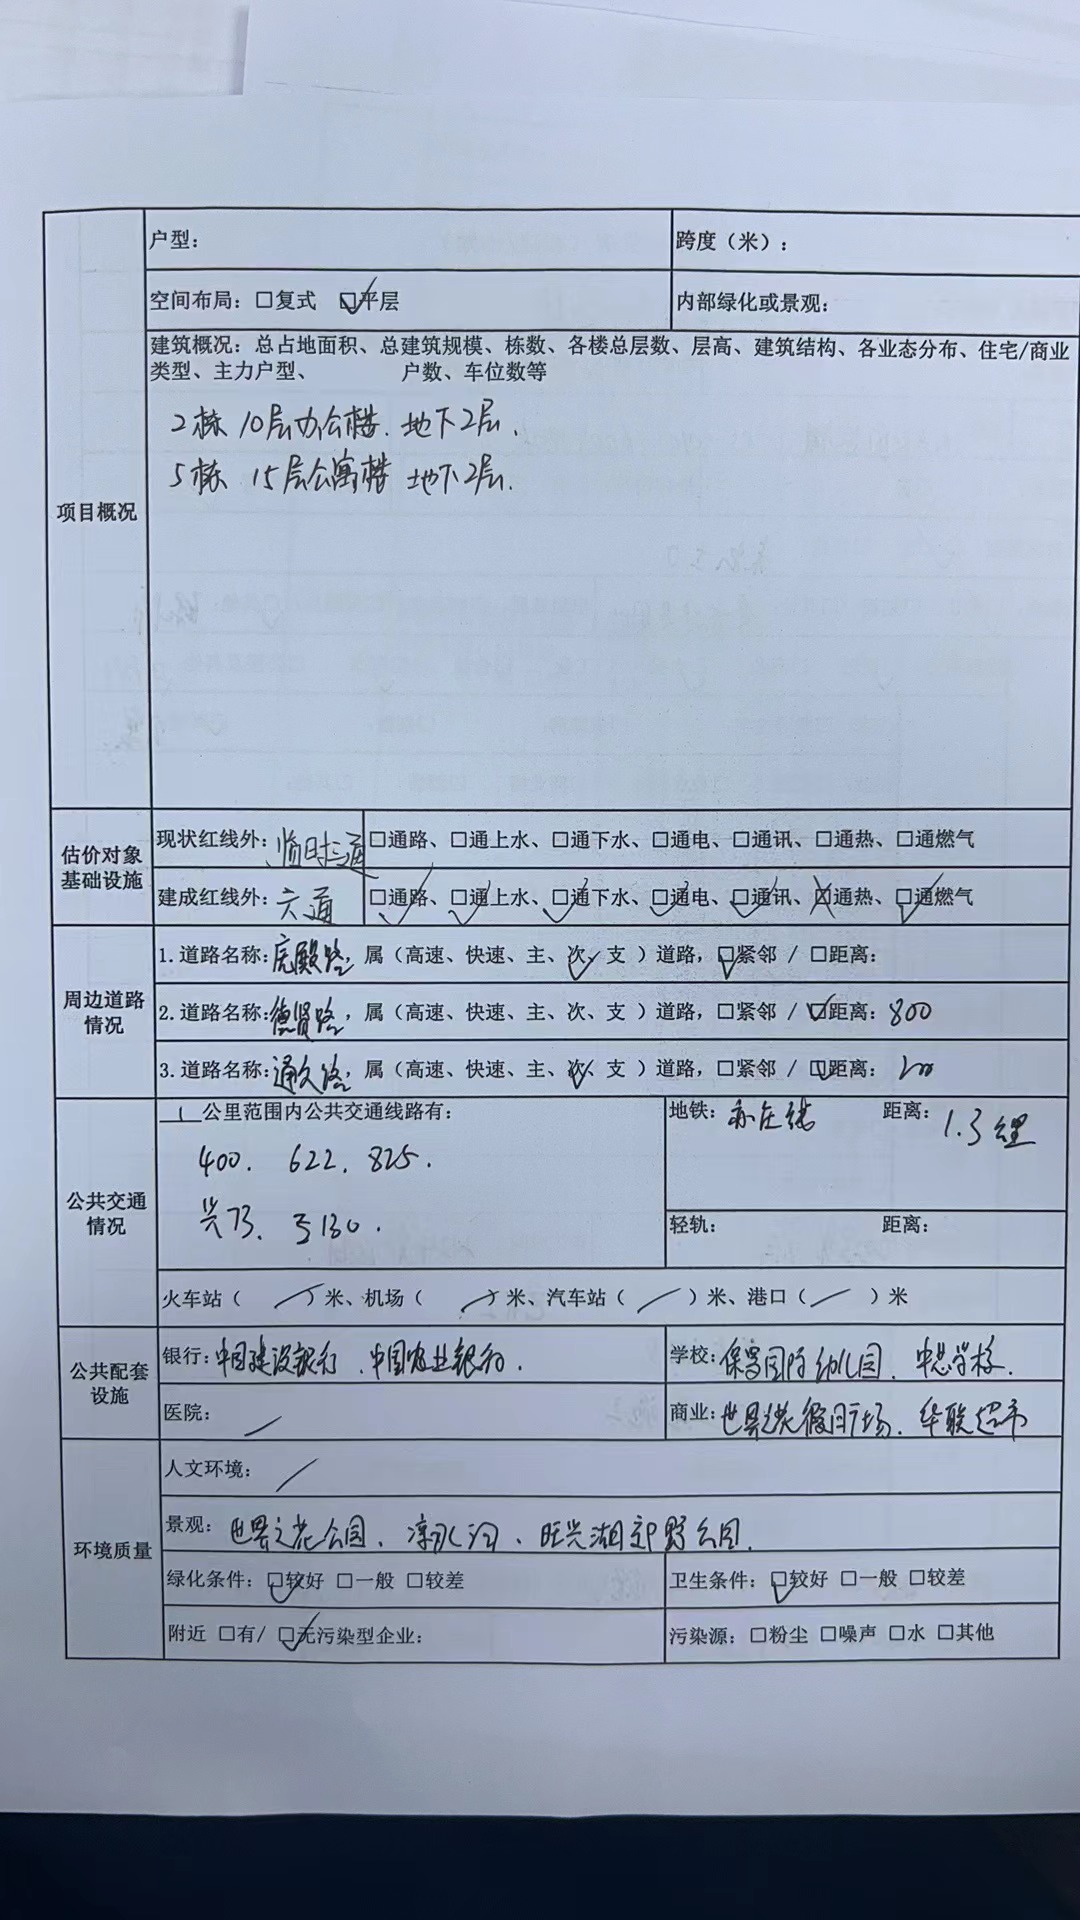 户型：
跨度（米）：
空间布局：☐复式 ☑平层
内部绿化或景观：
建筑概况：总占地面积、总建筑规模、栋数、各楼总层数、层高、建筑结构、各业态分布、住宅/商业
类型、主力户型、 户数、车位数等
2栋 10层办公楼．地下2层．
5栋 15层公寓楼 地下2层．
项目概况
估价对象
基础设施
现状红线外：临时三通 ☐通路、☐通上水、☐通下水、☐通电、☐通讯、☐通热、☐通燃气
建成红线外：六通 ☑通路、☑通上水、☑通下水、☑通电、☑通讯、☒通热、☑通燃气
周边道路
情况
1.道路名称：庑殿路，属（高速、快速、主、次✓、支 ）道路，☑紧邻 / ☐距离：
2.道路名称：德贤路，属（高速、快速、主、次、支 ）道路，☐紧邻 / ☑距离：800
3.道路名称：通久路，属（高速、快速、主、次✓、支 ）道路，☐紧邻 / ☑距离：200
公共交通
情况
1 公里范围内公共交通线路有：
400． 622．825．
兴73．专130．
地铁：亦庄线 距离：1.3公里
轻轨： 距离：
火车站（ ／ ）米、机场（ ／ ）米、汽车站（ ／ ）米、港口（ ／ ）米
公共配套
设施
银行：中国建设银行．中国农业银行．
学校：保富国际幼儿园．中芯学校．
医院：／
商业：世界之花假日广场．华联超市
环境质量
人文环境：／
景观：世界之花公园、凉水河、旺兴湖郊野公园．
绿化条件：☑较好 ☐一般 ☐较差
卫生条件：☑较好 ☐一般 ☐较差
附近 ☐有/ ☑无污染型企业：
污染源：☐粉尘 ☐噪声 ☐水 ☐其他